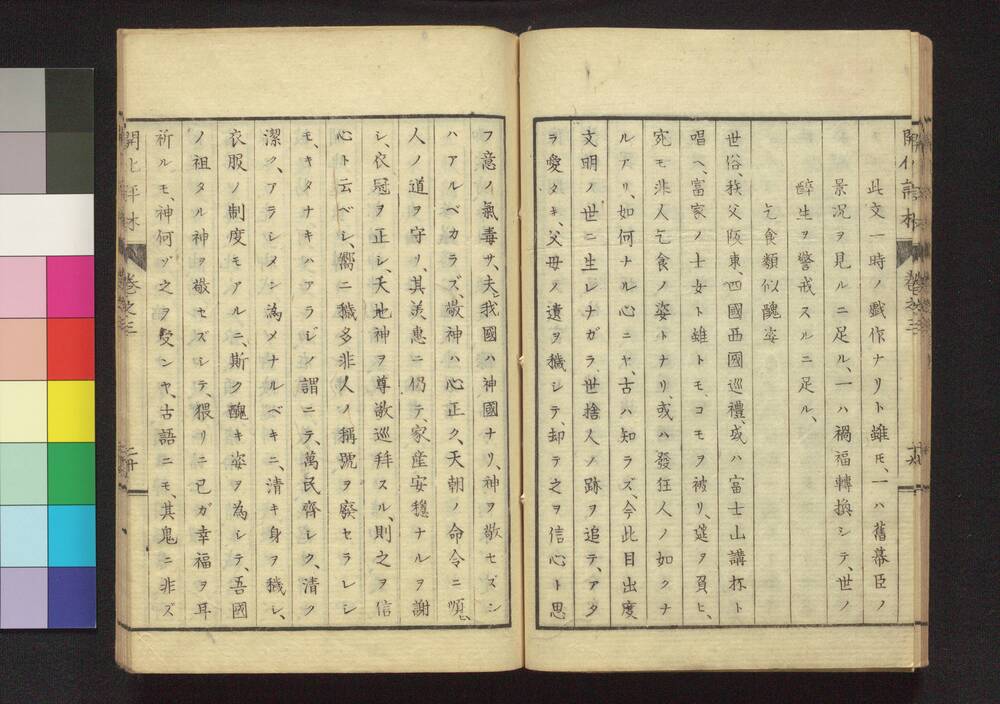 此文一時ノ戯作ナリト雖モ、一ハ舊幕臣ノ
景況ヲ見ルニ足ル、一ハ禍福轉換シテ、世ノ
醉生ヲ警戒スルニ足ル、
乞食類似醜姿
世俗、秩父阪東、四國西國巡禮、或ハ富士山講抔ト
唱ヘ、富家ノ士女ト雖トモ、コモヲ被リ、筵ヲ負ヒ、
宛モ非人乞食ノ姿トナリ、或ハ發狂人ノ如クナ
ルアリ、如何ナル心ニヤ、古ハ知ラズ、今此目出度
文明ノ世ニ生レナガラ、世捨人ノ跡ヲ追テ、アタ
ラ愛タキ、父母ノ遺ヲ穢シテ、却テ之ヲ信心ト思
フ意ノ氣毒サ、夫レ我國ハ神國ナリ、神ヲ敬セズン
ハアルベカラズ、敬神ハ心正ク、天朝ノ命令ニ順ヒ、
人ノ道ヲ守リ、其美惠ニ仍テ、家産安穩ナルヲ謝
シ、衣冠ヲ正シ、天地神ヲ尊敬巡拜スル、則之ヲ信
心ト云ベシ、嚮ニ穢多非人ノ稱號ヲ廢セラレシ
モ、キタナキハアラジノ謂ニテ、萬民齊シク、清ク
潔ク、アラシメン為メナルベキニ、清キ身ヲ穢シ、
衣服ノ制度モアルニ、斯ク醜キ姿ヲ為シテ、吾國
ノ祖タル神ヲ敬セズシテ、猥リニ己ガ幸福ヲ耳
祈ルモ、神何ゾ之ヲ受ンヤ、古語ニモ、其鬼ニ非ズ